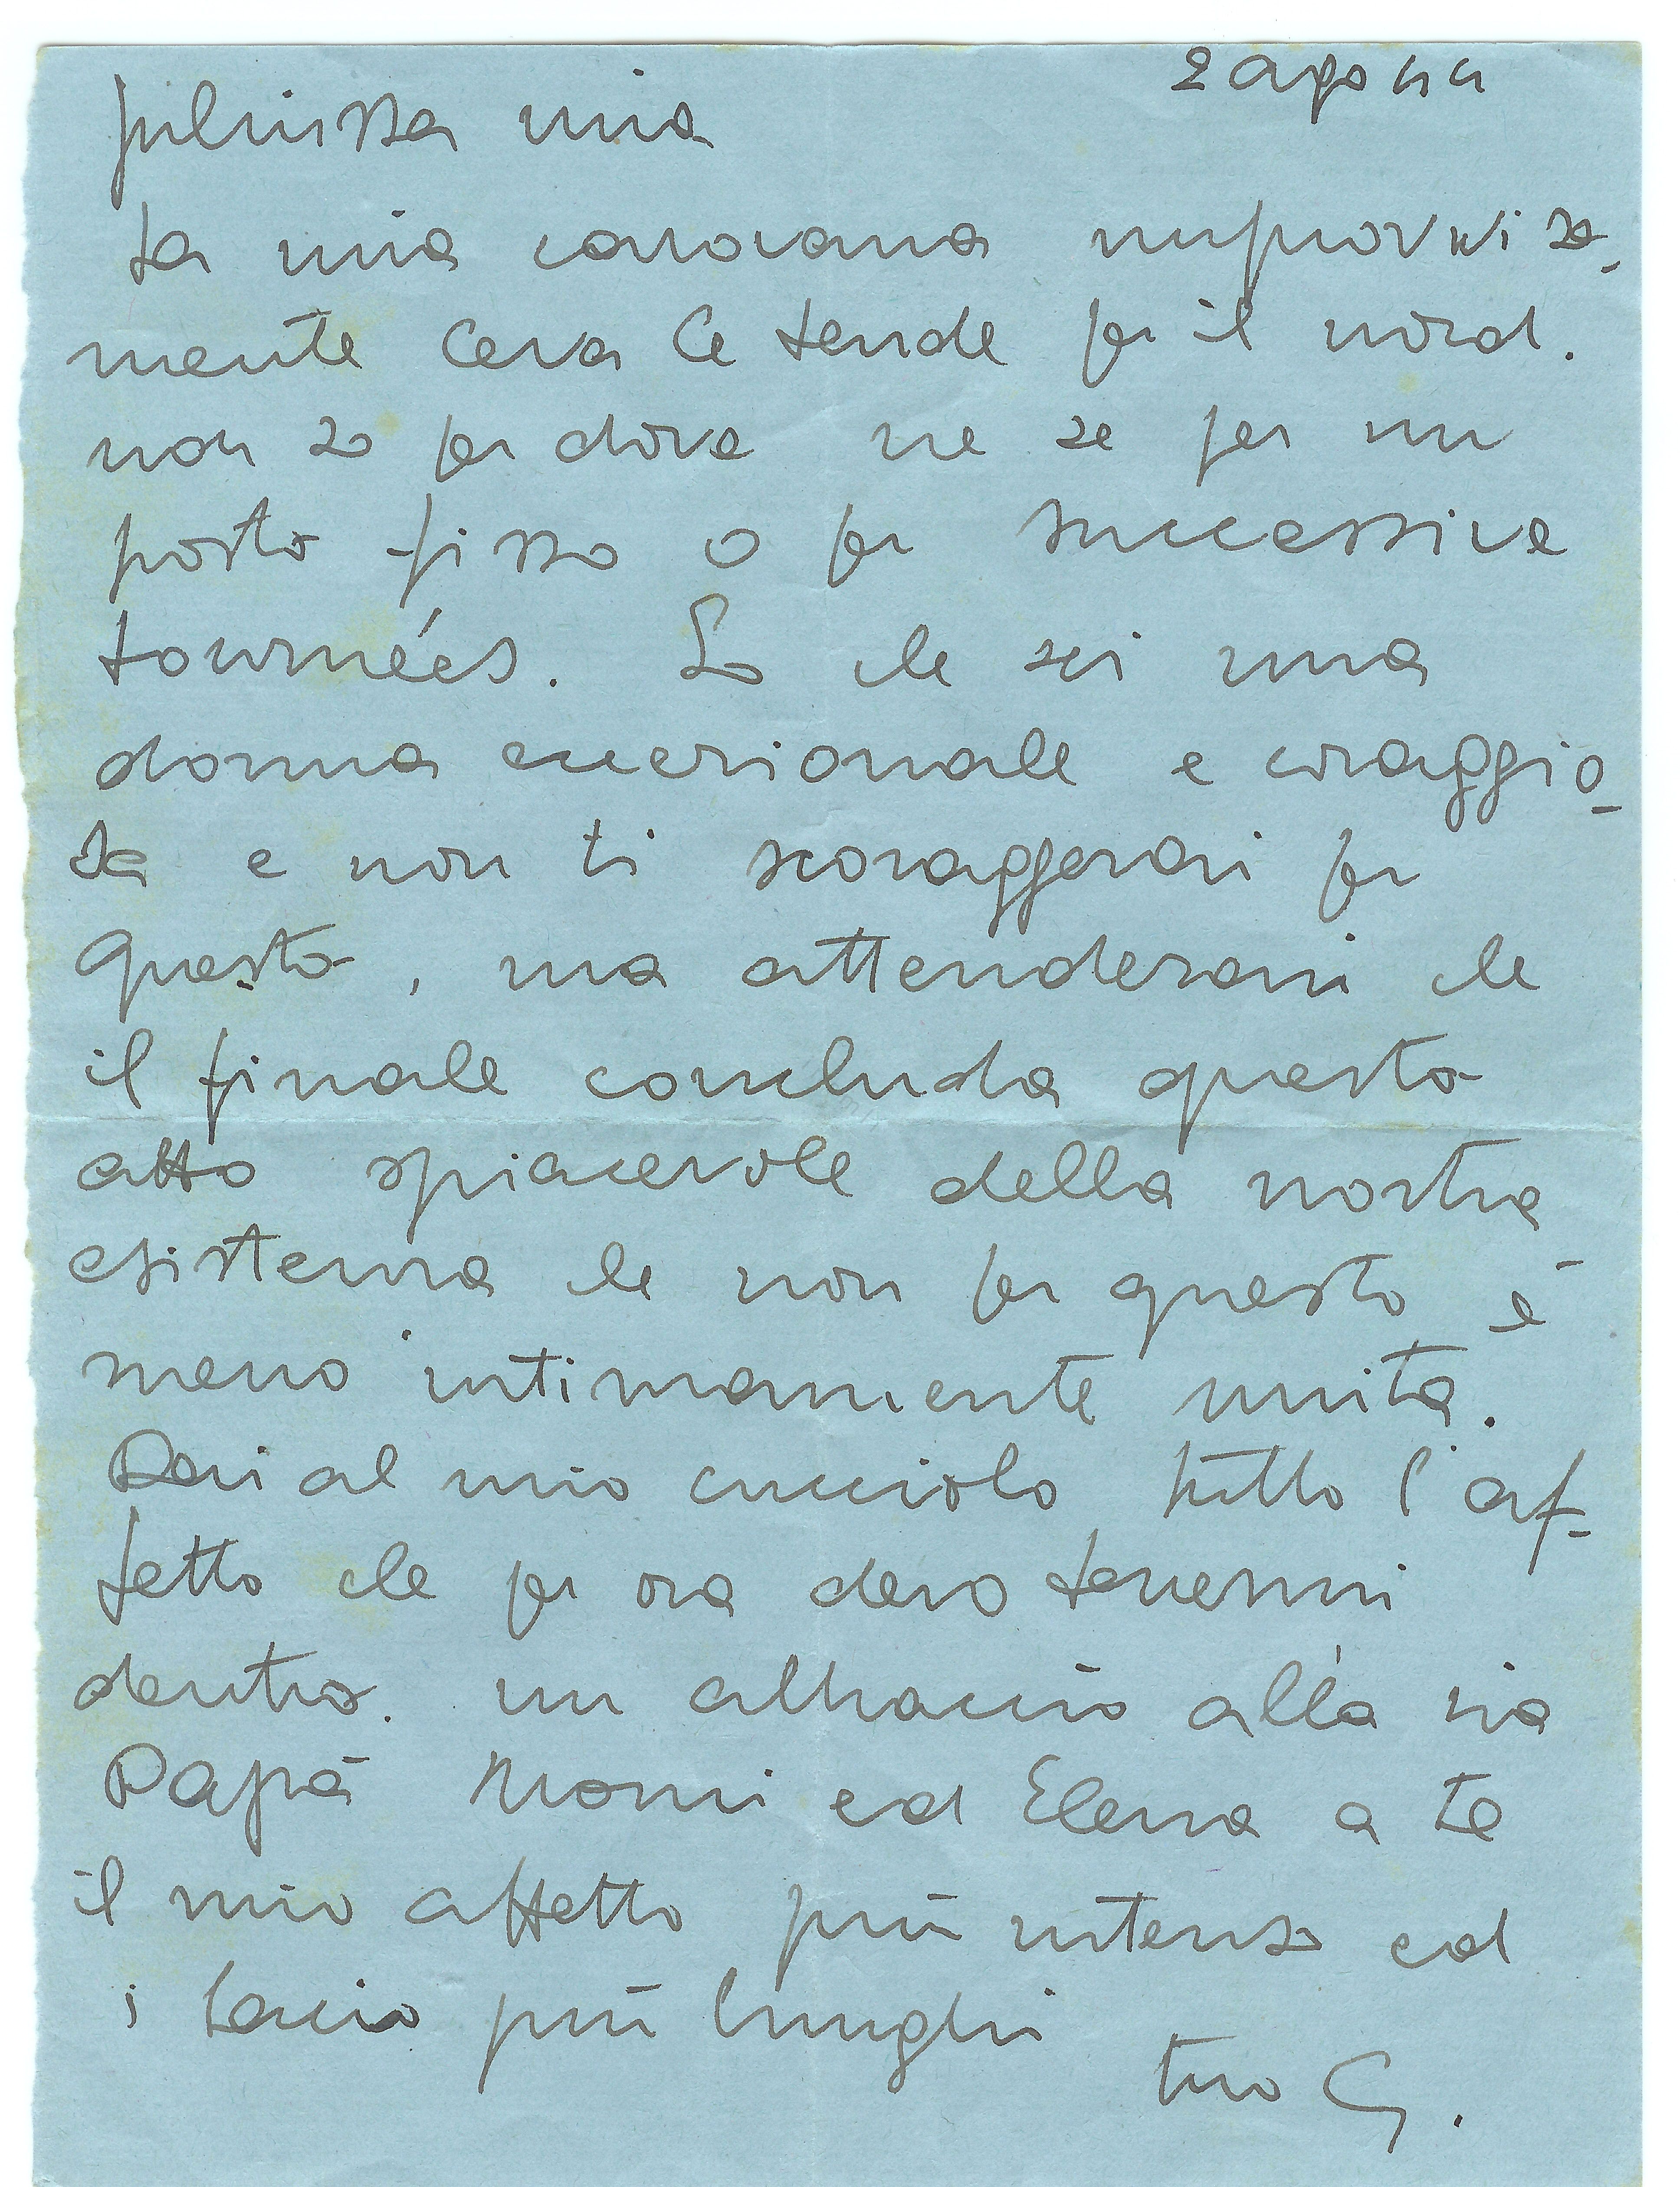 2 ago 44
mia
La mia carovana improvvisa-
mente leva le tende per il nord.
non so per dove ne se per un
posto fisso o per successive
tournées. So che sei una
donna eccezionale e coraggio-
sa e non ti scoraggerai per
questo, ma attenderai che
il finale concluda questo
atto spiacevole della nostra
esistenza che non per questo è
meno intimamente unita.
Dai al mio cucciolo tutto l'af-
fetto che per ora devo tenermi
dentro. un abbraccio alla zia
Papà ed Elena a te
il mio affetto più intenso ed
i bacio più lunghi
tuo G.